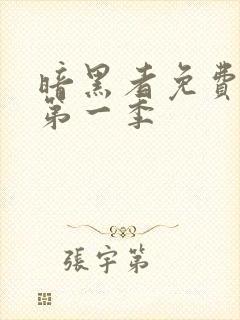 暗黑者免費
第一季
張宇第